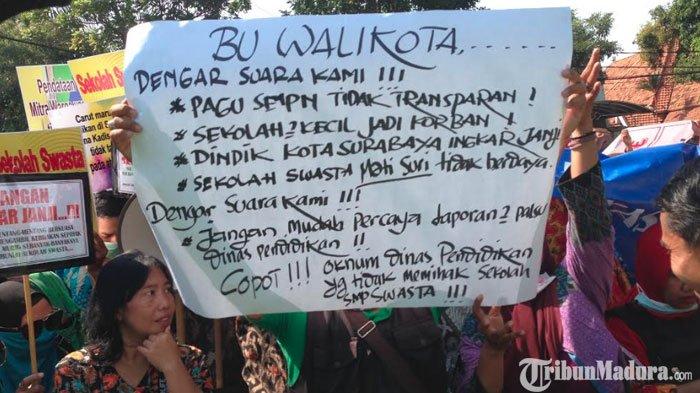 BU WALIKOTA,......
DENGAR SUARA KAMI !!!
* PAGU SMPN TIDAK TRANSPARAN !
* SEKOLAH2 KECIL JADI KORBAN !
* DINDIK KOTA SURABAYA INGKAR JANJI
* SEKOLAH SWASTA Mati Suri tidak berdaya.
Dengar Suara Kami !!!
* Jangan mudah Percaya Laporan2 palsu
Dinas Pendidikan !!
COPOT !!! oknum Dinas Pendidikan
yg tidak memihak Sekolah
SMP SWASTA !!!
Pendataan
Mitra
Sekolah Swasta
Carut maru
Sekolah Swasta
JANGAN
AR JANJI...DI
TribunMadura.com